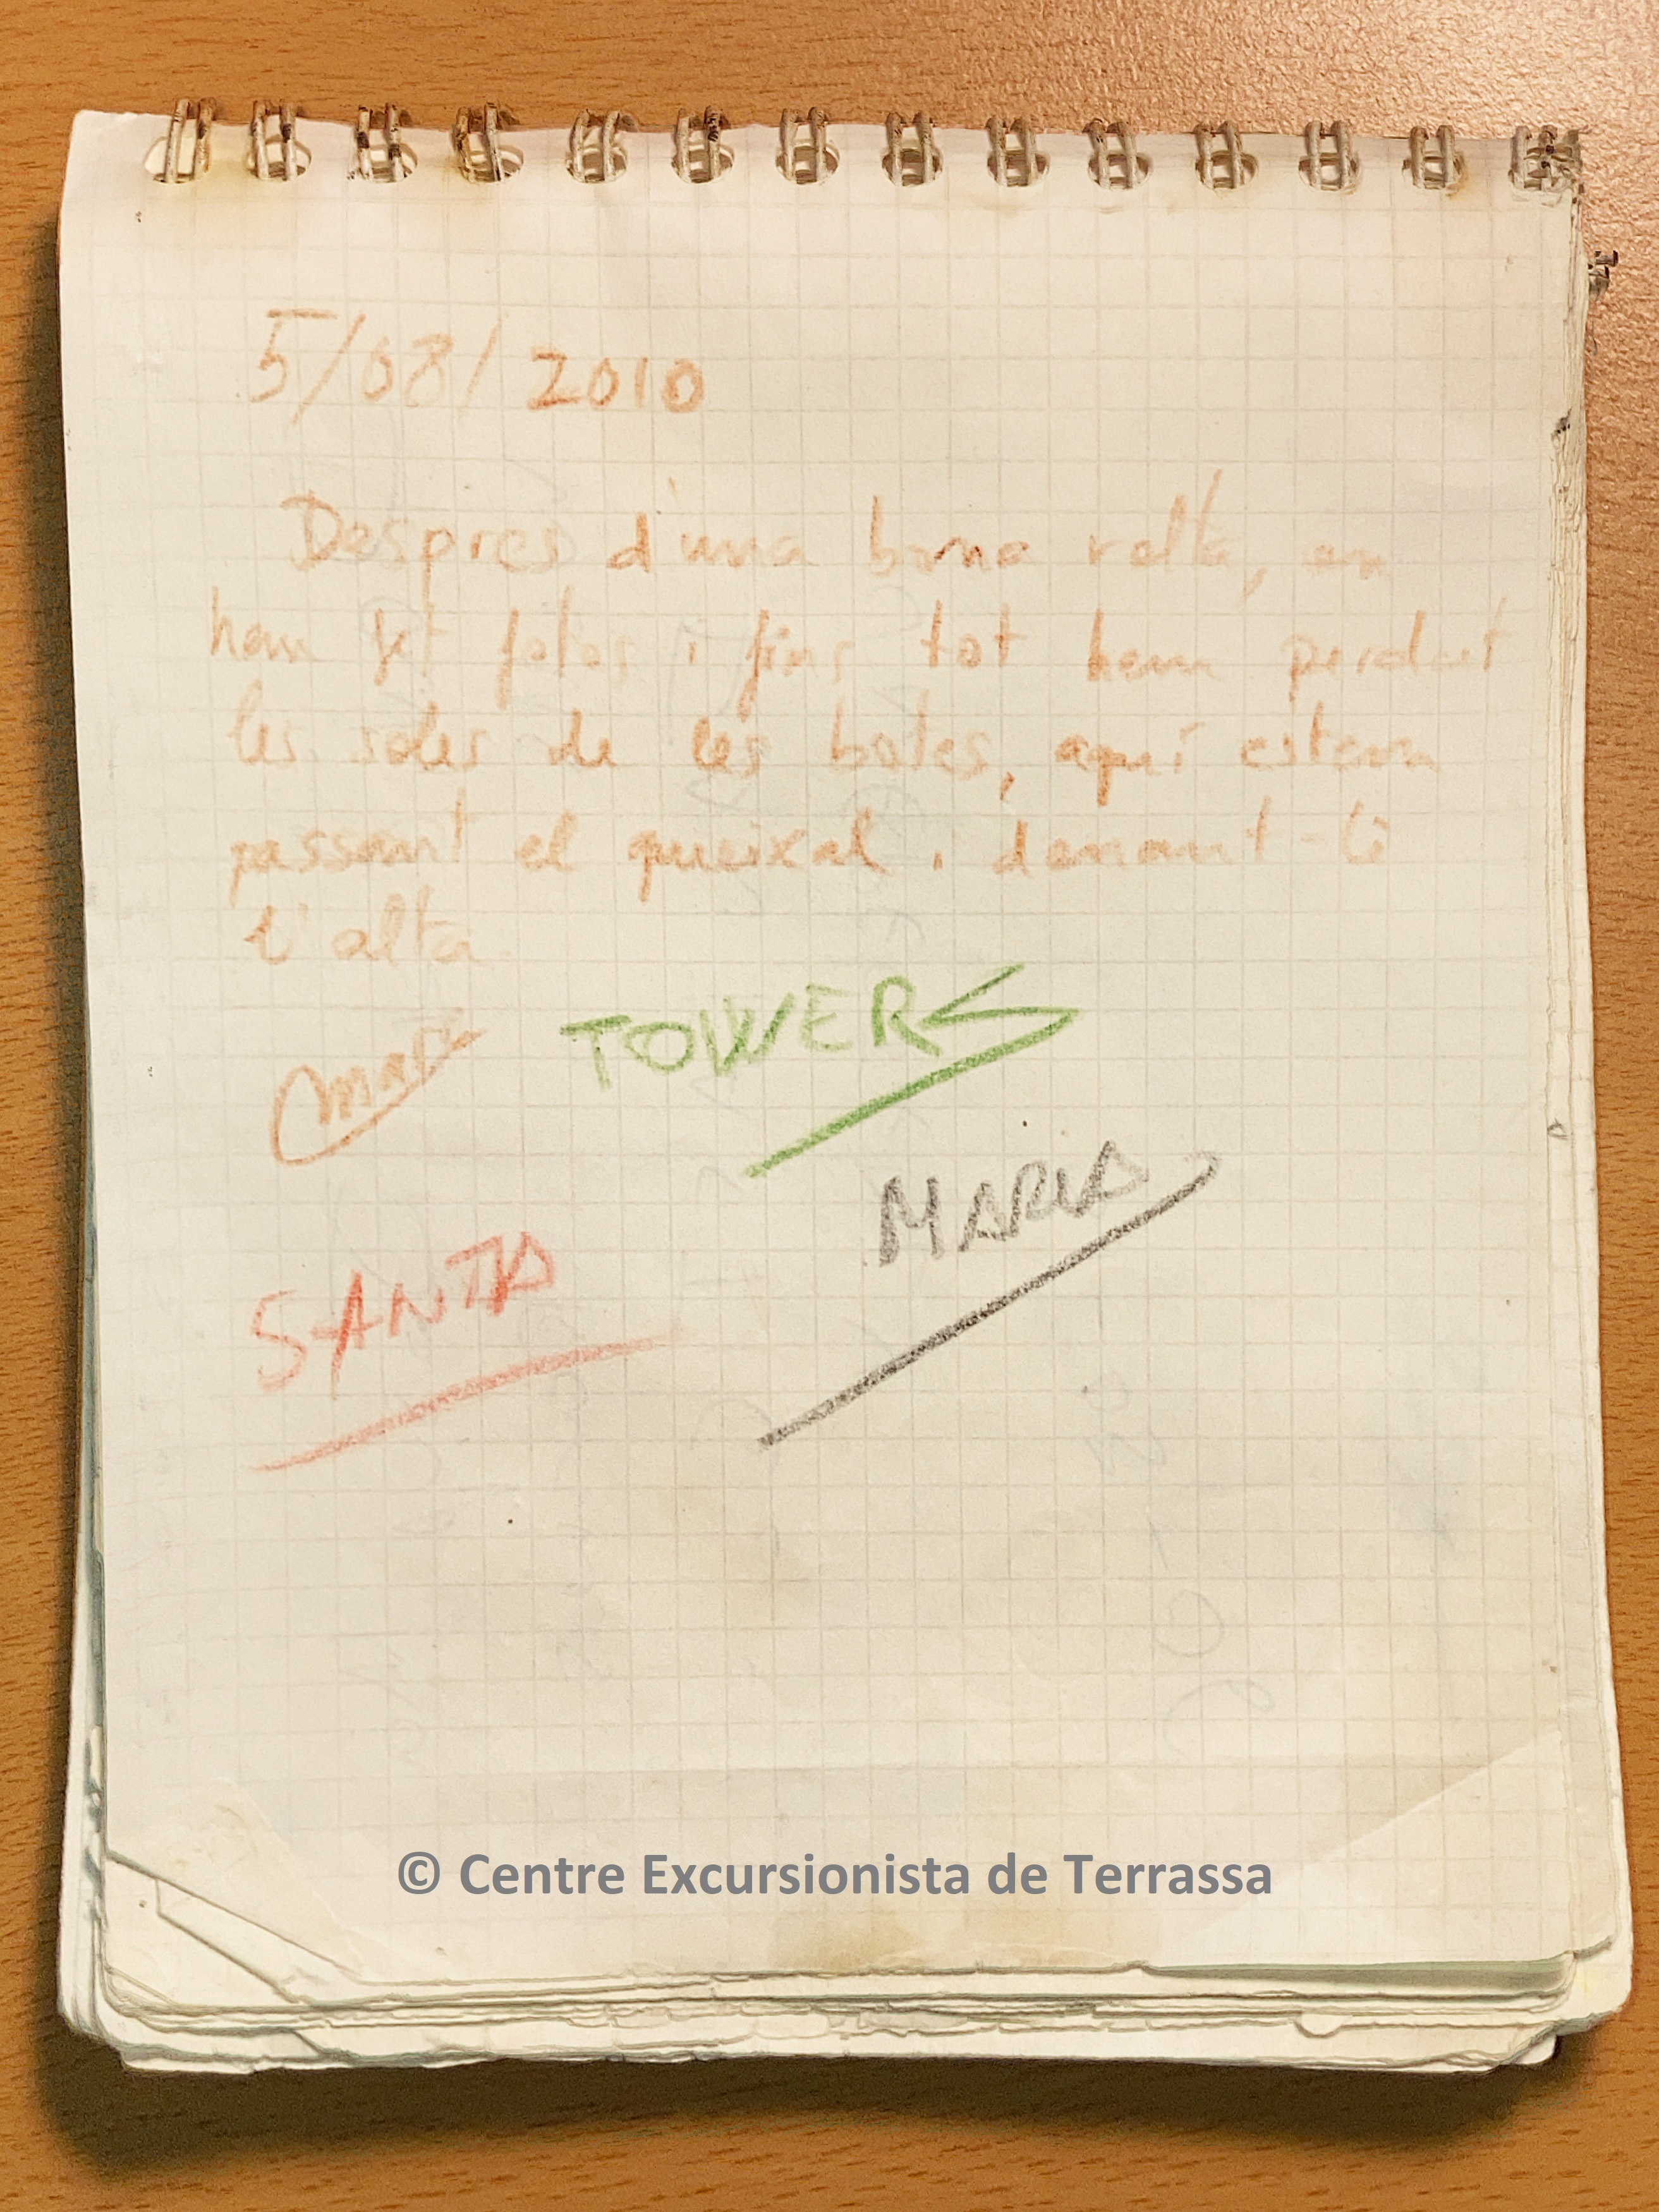 5/08/2010
Desprès d'una bona volta, on
hem fet fotos i fins tot hem perdut
les soles de les botes, aquí estem
passant el queixal i donant-li
l'alta
Mark
TOWERS
MARIA
SANTA
© Centre Excursionista de Terrassa